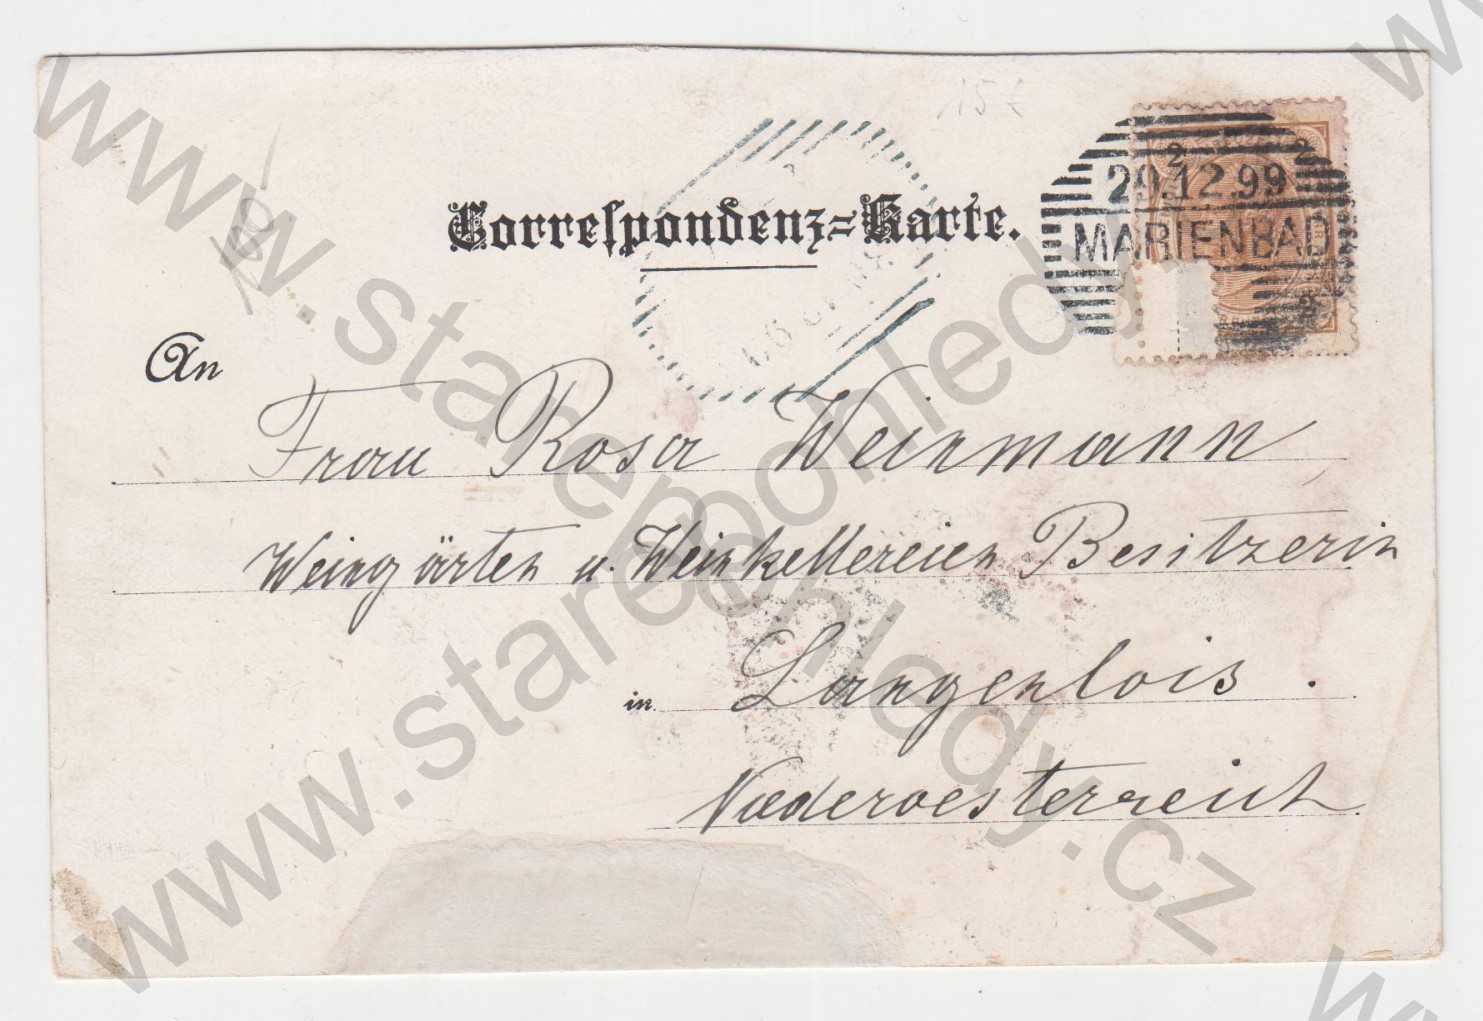 Correspondenz=Karte.
2 2
29.12.99
MARIENBAD
An
Frau Rosa Weinmann
Weingärten u. Weinkellereien Besitzerin
in Langenlois.
Niederoesterreich.
www.starepohledy.cz
www.starepohledy.cz